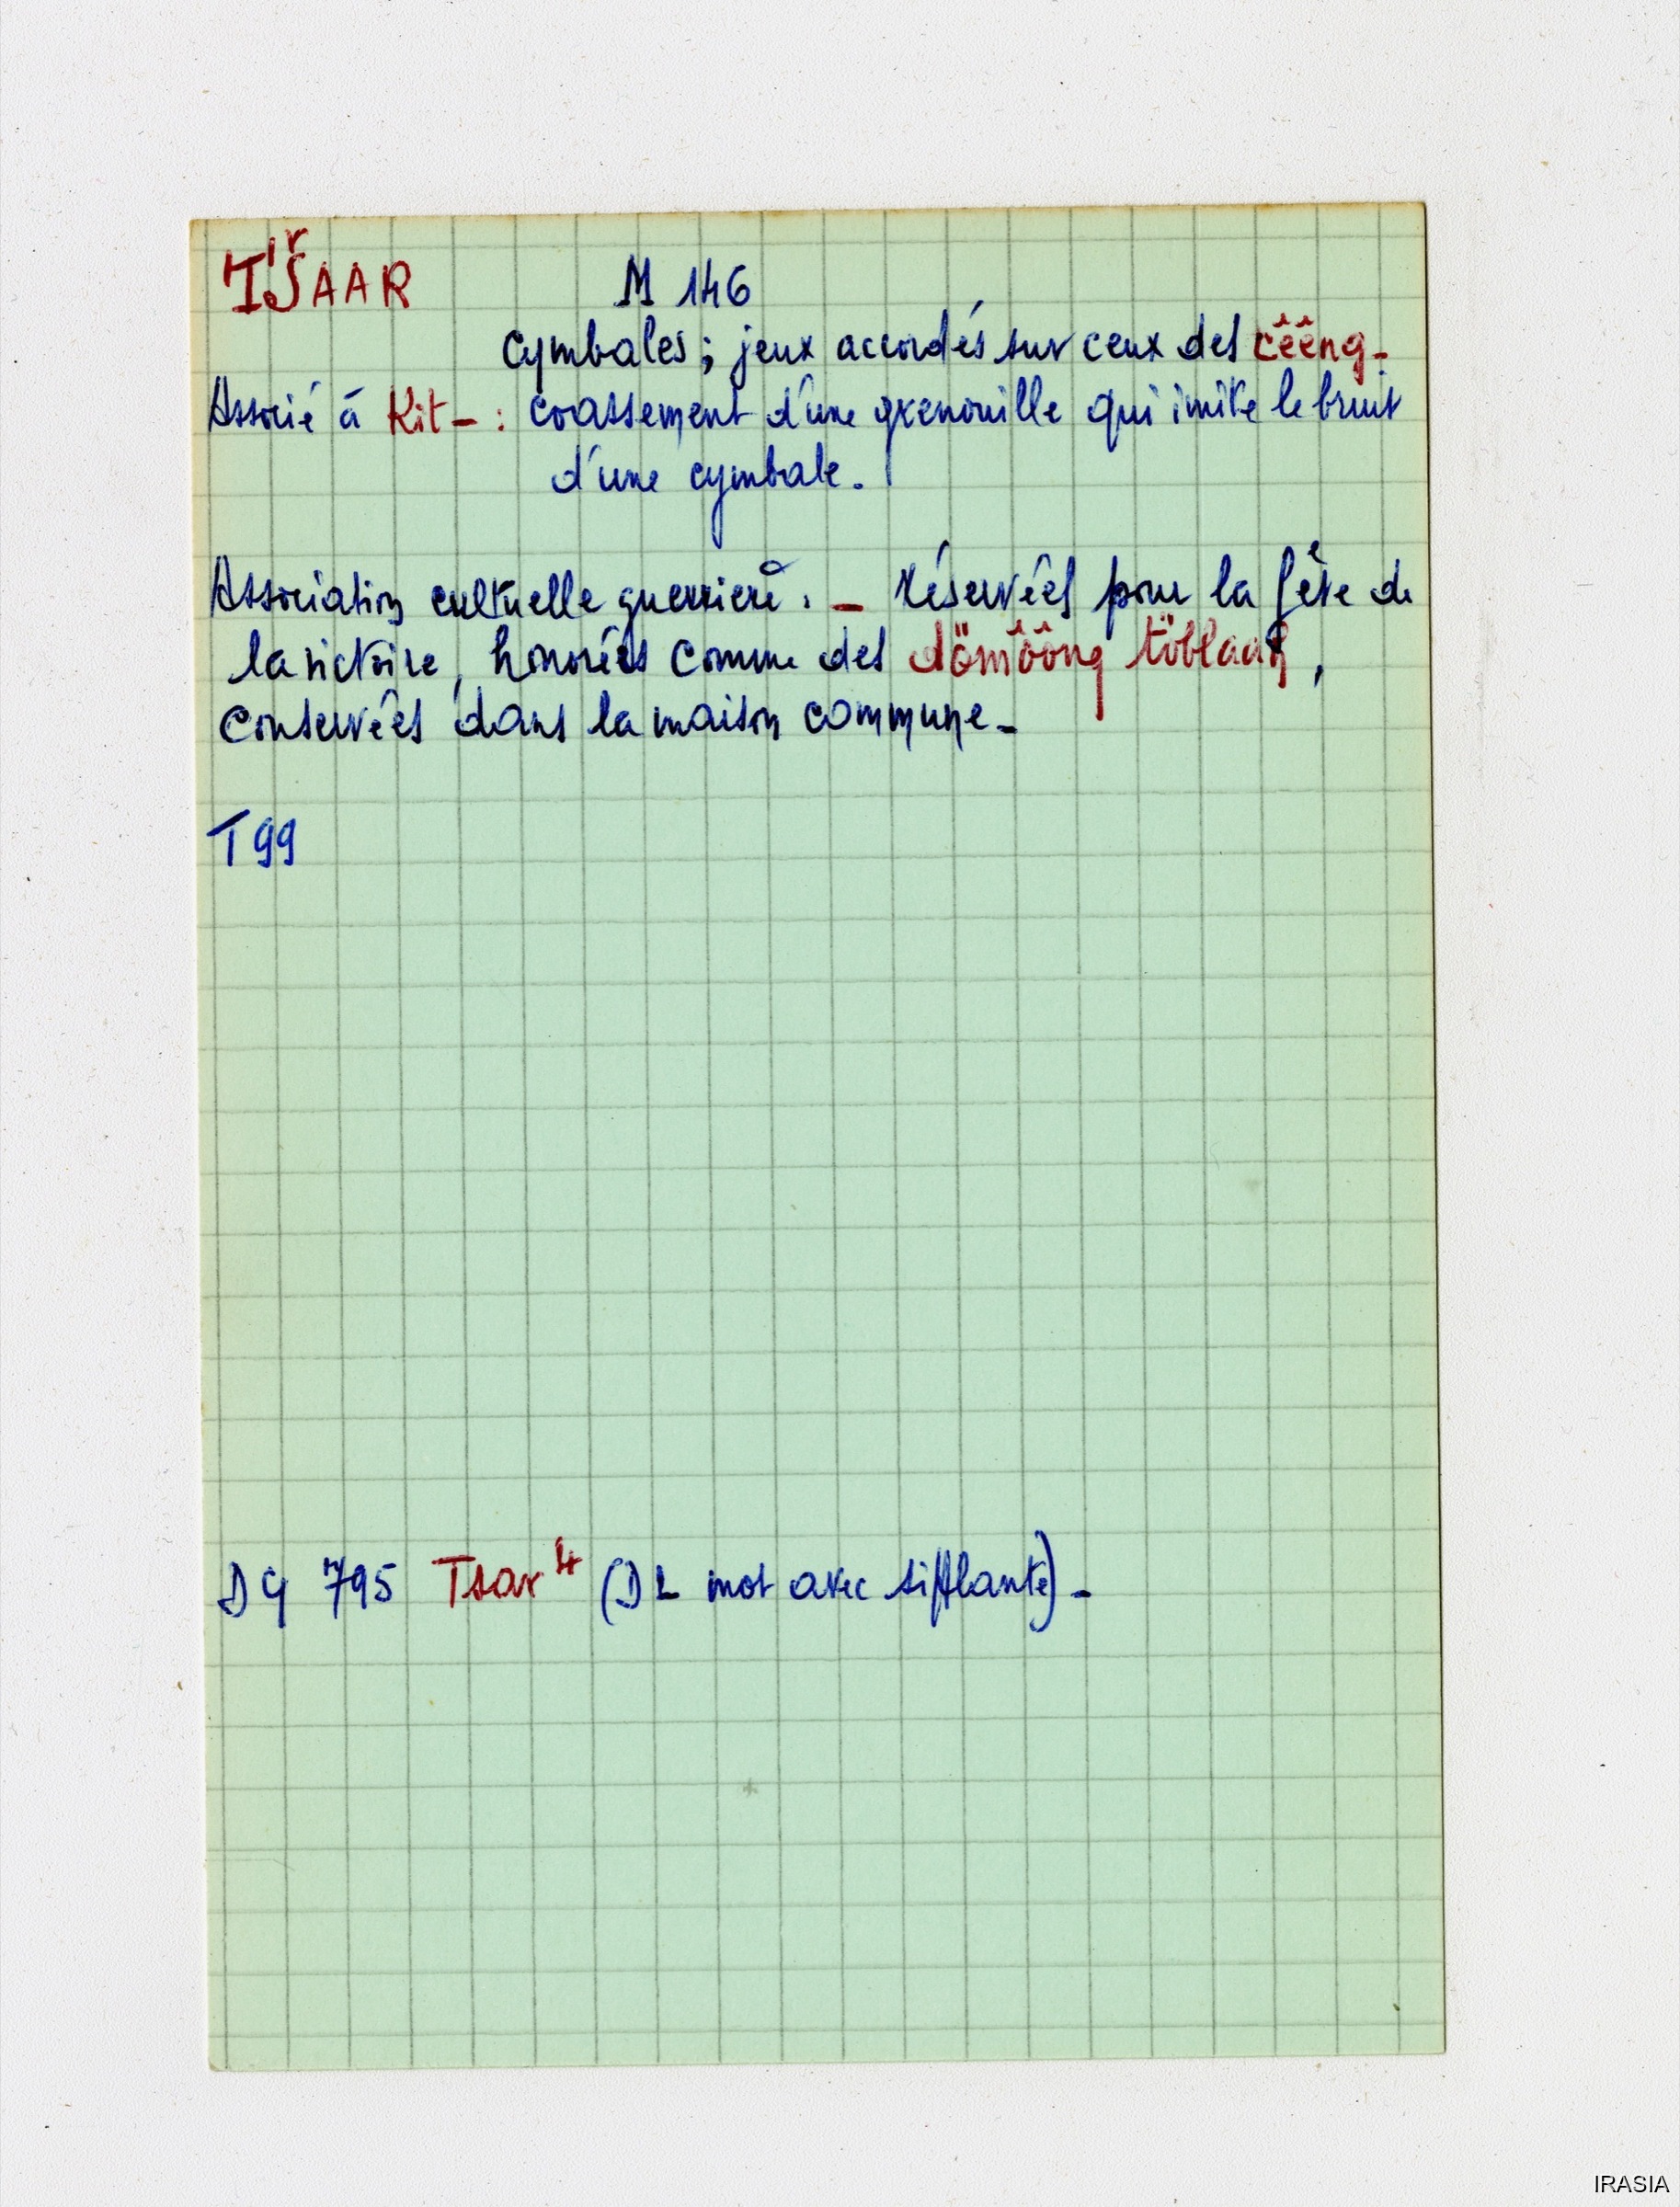 TŠAAR M 146
cymbales ; jeux accordés sur ceux des cêêng -
Associé à Kit - : coassement d'une grenouille qui imite le bruit
d'une cymbale.
Association cultuelle guerrière. - réservées pour la fête de
la victoire, honorées comme des dömôông töblaah,
conservées dans la maison commune -
T 99
DG 795 Tsar 4 (DL mot avec sifflante) -
IRASIA